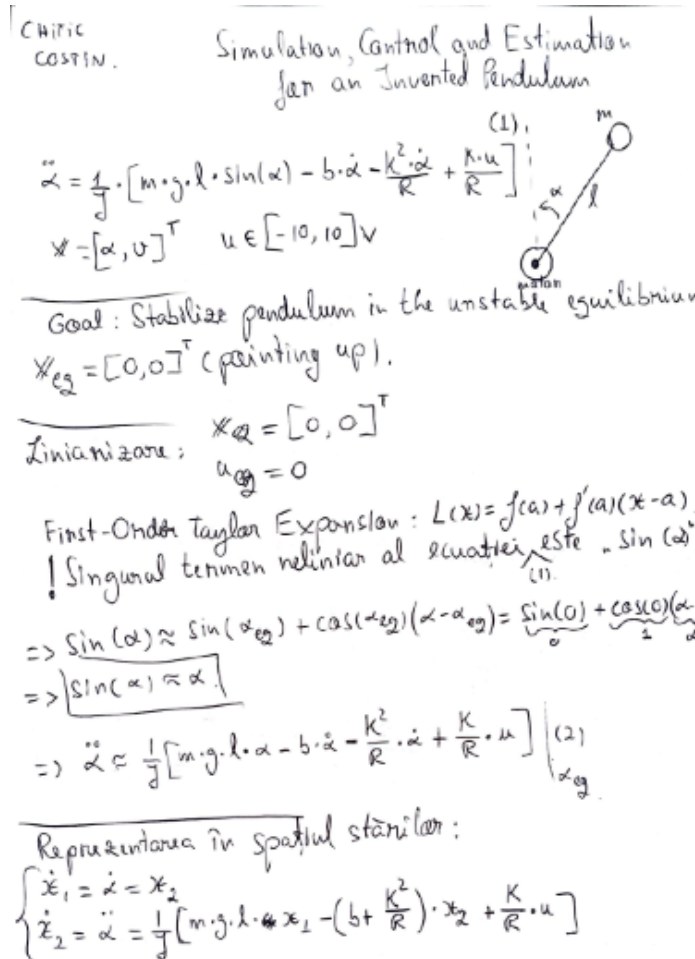 CHIFIC
COSTIN.
Simulation, Control and Estimation
for an Inverted Pendulum
(1)
m
α̈ = 1/J · [m·g·l·sin(α) - b·α̇ - K²·α̇/R + K·u/R]
α
l
x = [α, v]ᵀ u ∈ [-10, 10] V
Goal: Stabilize pendulum in the unstable equilibrium
x_eq = [0,0]ᵀ (pointing up).
Liniarizare: x_eq = [0, 0]ᵀ
u_eq = 0
First-Order Taylor Expansion: L(x) = f(a) + f'(a)(x-a)
! Singurul termen neliniar al ecuatiei (1) este "sin(α)"
=> sin(α) ≈ sin(α_eq) + cos(α_eq)(α-α_eq) = sin(0) + cos(0)(α-
0 1 α
=> sin(α) ≈ α
=> α̈ ≈ 1/J [m·g·l·α - b·α̇ - K²/R · α̇ + K/R · u] | (2)
α_eq
Reprezentarea în spațiul stărilor:
ẋ₁ = α̇ = x₂
ẋ₂ = α̈ = 1/J [m·g·l·x₁ - (b + K²/R)·x₂ + K/R · u]